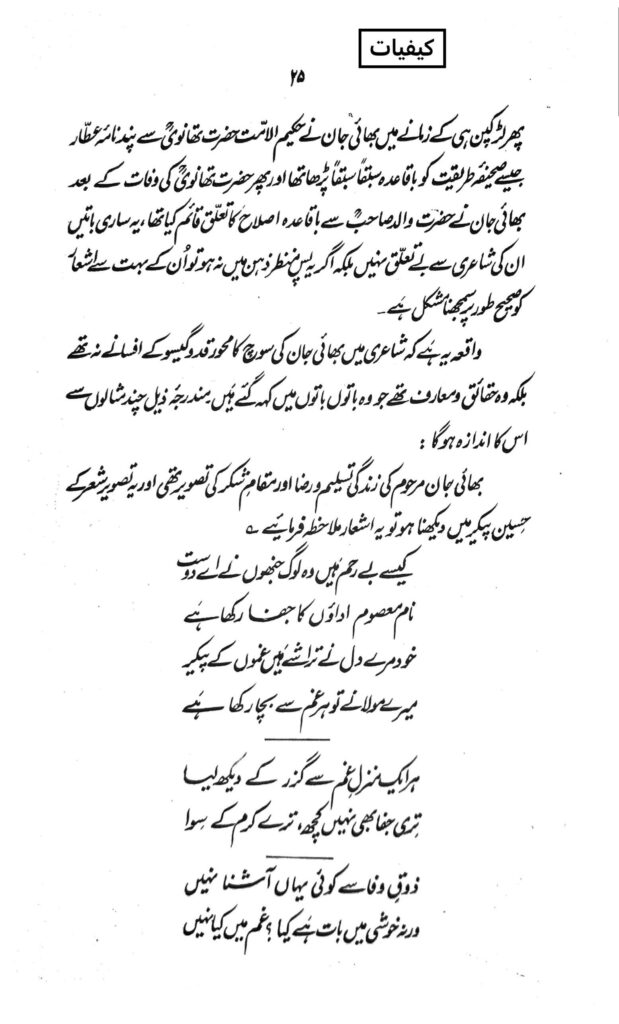 کیفیات
۲۵
پھر لڑکپن ہی کے زمانے میں بھائی جان نے حکیم الامّت حضرت تھانویؒ سے پند نامۂ عطّار
جیسے صحیفۂ طریقیت کو باقاعدہ سبقاً سبقاً پڑھا تھا اور پھر حضرت تھانویؒ کی وفات کے بعد
بھائی جان نے حضرت والد صاحبؒ سے باقاعدہ اصلاح کا تعلّق قائم کیا تھا، یہ ساری باتیں
ان کی شاعری سے بے تعلّق نہیں بلکہ اگر یہ پس منظر ذہن میں نہ ہو تو اُن کے بہت سے اشعار
کو صحیح طور پر سمجھنا مشکل ہے۔
واقعہ یہ ہے کہ شاعری میں بھائی جان کی سوچ کا محور قد و گیسو کے افسانے نہ تھے
بلکہ وہ حقائق و معارف تھے جو وہ باتوں باتوں میں کہہ گئے ہیں۔ مندرجۂ ذیل چند مثالوں سے
اس کا اندازہ ہوگا :
بھائی جان مرحوم کی زندگی تسلیم و رضا اور مقامِ شکر کی تصویر تھی اور یہ تصویر شعر کے
حسین پیکر میں دیکھنا ہو تو یہ اشعار ملاحظہ فرمائیے ؎
کیسے بے رحم ہیں وہ لوگ جنھوں نے اے دوست
نام معصوم اداؤں کا جفا رکھا ہے
خود مرے دل نے تراشے ہیں غموں کے پیکر
میرے مولا نے تو ہر غم سے بچا رکھا ہے
ہر ایک منزلِ غم سے گزر کے دیکھ لیا
تری جفا بھی نہیں کچھ، ترے کرم کے سوا
ذوقِ وفا سے کوئی یہاں آشنا نہیں
ورنہ خوشی میں بات ہے کیا؟ غم میں کیا نہیں